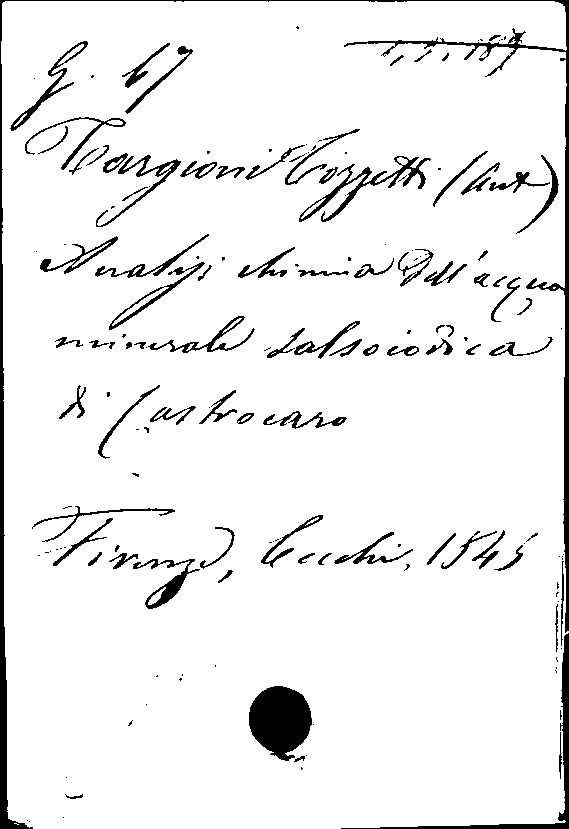 G. 67
Targioni Tozzetti (Ant)
Analisi chimica dell'acqua
minerale salsoiodica
di Castrocaro
Firenze, Cecchi, 1845